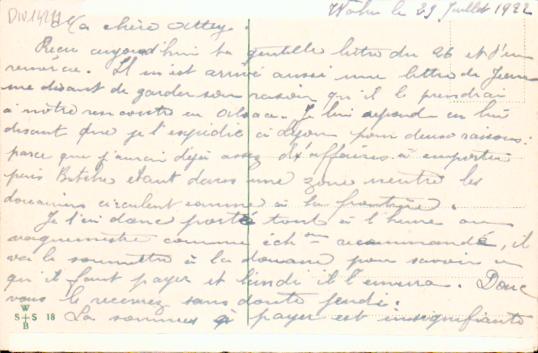 DIV14211
Wahn le 29 Juillet 1922
Ma chère
Reçu aujourd'hui ta gentille lettre du 26 et t'en
remercie. Il m'est arrivé aussi une lettre de
me disant de garder son rasoir qu'il le prendrai
à notre rencontre en Alsace. Je lui répond en lui
disant que je l'expédie à Dijon pour deux raisons:
parce que j'aurai déjà assez d'affaires à emporter
puis Bitche étant dans une zone neutre les
douaniers circulent comme à la frontière.
Je l'ai donc porté tout à l'heure au
vaguemestre comme éch^on recommandé, il
va le soumettre à la douane pour savoir ce
qu'il faut payer et lundi il l'enverra. Donc
vous le recevrez sans doute jeudi.
La somme à payer est insignifiante
W
S S 18
B